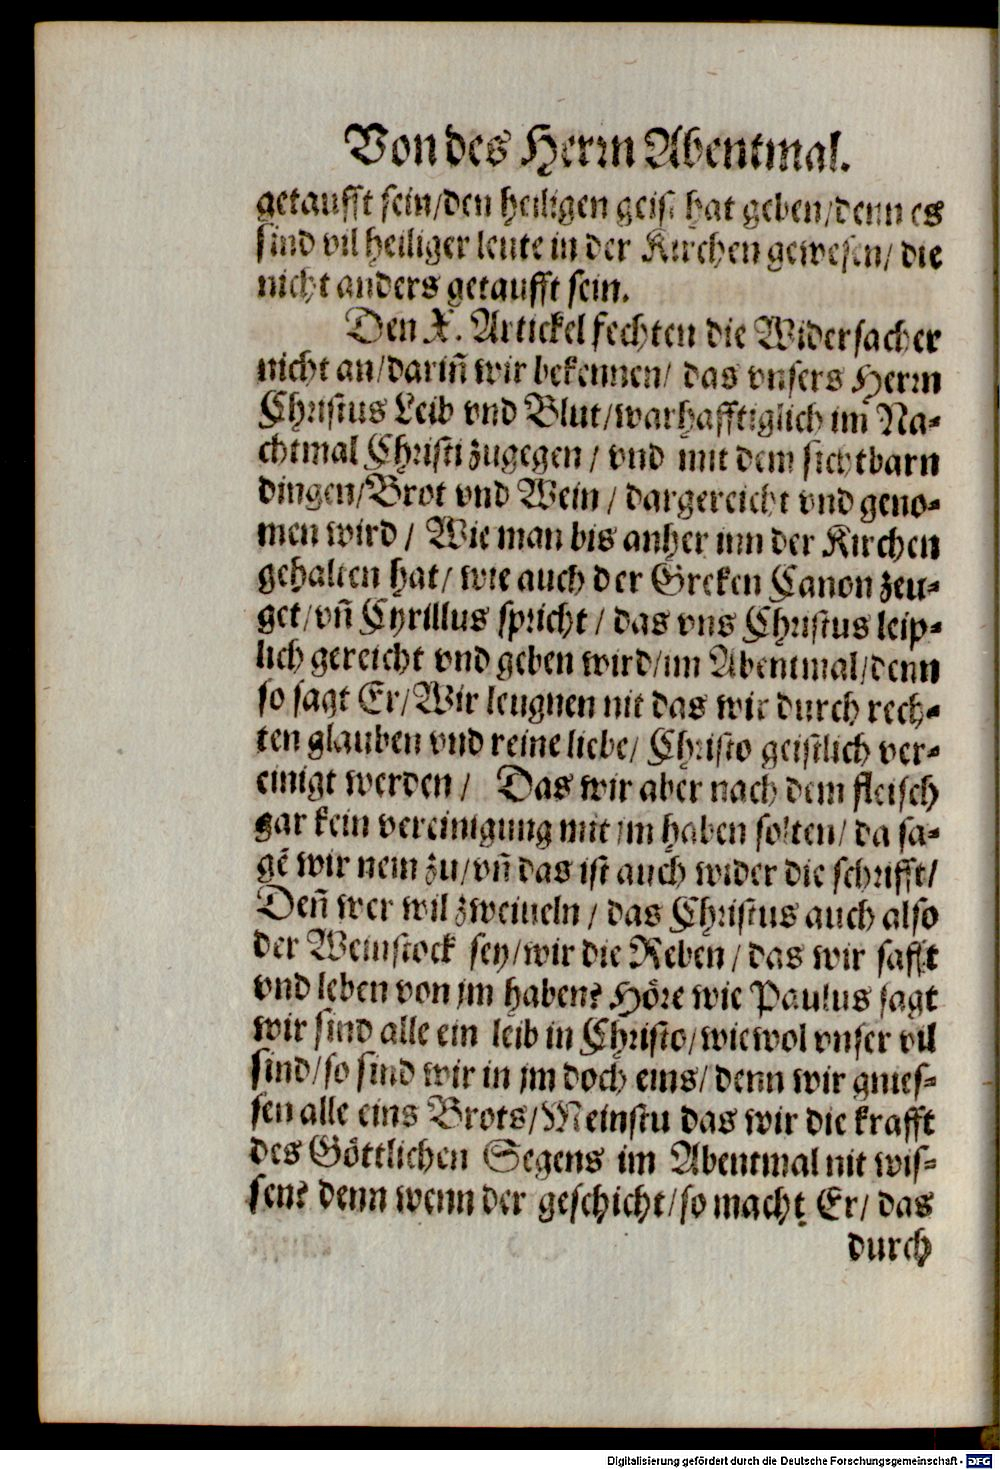 Von des Herrn Abentmal.
getaufft sein/den heiligen geist hat geben/denn es
sind vil heiliger leute in der Kirchen gewesen/ die
nicht anders getaufft sein.
Den X. Artickel fechten die Widersacher
nicht an/darin̄ wir bekennen/ das vnsers Herrn
Christus Leib vnd Blut/warhafftiglich im Na-
chtmal Christi zugegen / vnd mit dem sichtbarn
dingen/Brot vnd Wein / dargereicht vnd geno-
men wird / Wie man bis anher inn der Kirchen
gehalten hat/ wie auch der Greken Canon zeu-
get/vn̄ Cyrillus spricht / das vns Christus leip-
lich gereicht vnd geben wird/im Abentmal/denn
so sagt Er/Wir leugnen nit das wir durch rech-
ten glauben vnd reine liebe/ Christo geistlich ver-
einigt werden / Das wir aber nach dem fleisch
gar kein vereinigung mit im haben solten/ da sa-
gē wir nein zu/vn̄ das ist auch wider die schrifft/
Den̄ wer wil zweiueln / das Christus auch also
der Weinstock sey/wir die Reben / das wir safft
vnd leben von im haben? Höre wie Paulus sagt
wir sind alle ein leib in Christo/wiewol vnser vil
sind/so sind wir in im doch eins/ denn wir gnies-
sen alle eins Brots/Meinstu das wir die krafft
des Göttlichen Segens im Abentmal nit wis-
sen? denn wenn der geschicht/so macht Er/ das
durch
Digitalisierung gefördert durch die Deutsche Forschungsgemeinschaft - DFG